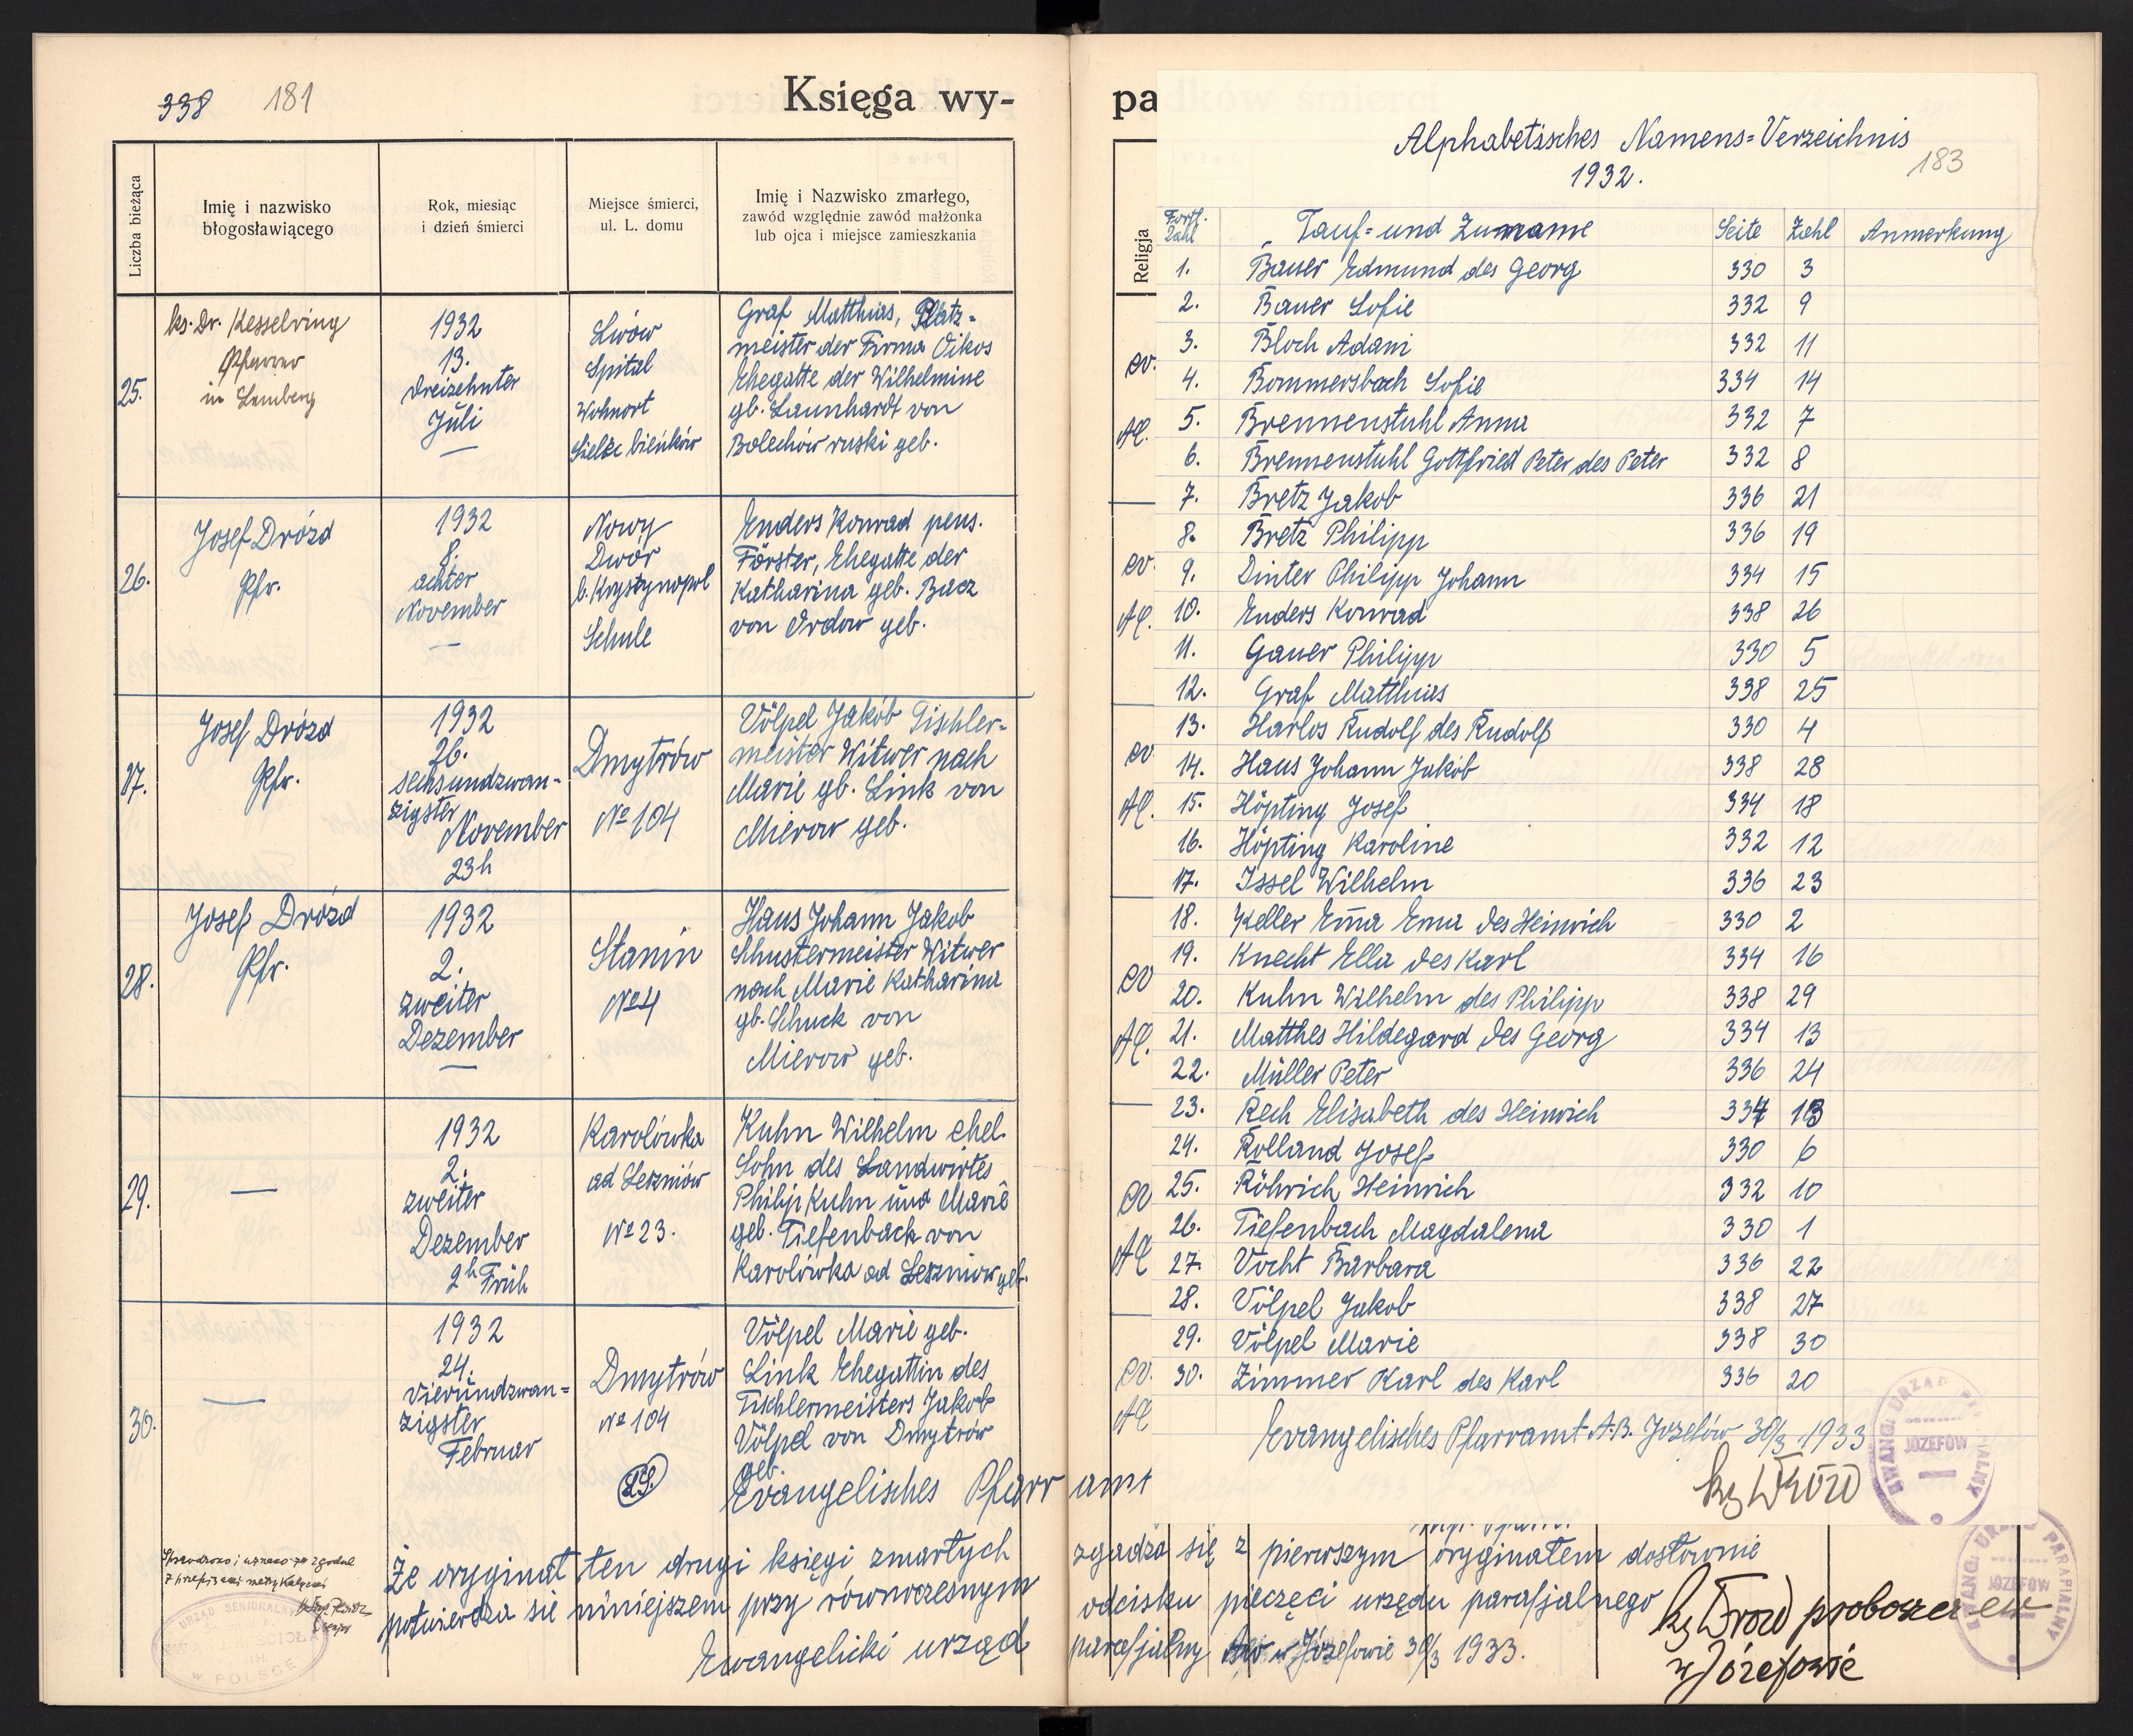 338 181
Księga wy-
Liczba bieżąca
Imię i nazwisko
błogosławiącego
Rok, miesiąc
i dzień śmierci
Miejsce śmierci,
ul. L. domu
Imię i Nazwisko zmarłego,
zawód względnie zawód małżonka
lub ojca i miejsce zamieszkania
25.
ks. Dr. Kesselring
Pfarrer
in Lemberg
1932
13.
dreizehnter
Juli
Lwów
Spital
Wohnort
Sielec bieńków
Graf Matthias, Platz-
meister der Firma Oikos
Ehegatte der Wilhelmine
gb. Launhardt von
Bolechów ruski geb.
26.
Josef Drózd
Pfr.
1932
8.
achter
November
Nowy
Dwór
b. Krystynopol
Schule
Enders Konrad pens.
Förster, Ehegatte der
Katharina geb. Bacz
von Ordow geb.
27.
Josef Drózd
Pfr.
1932
26.
sechsundzwan-
zigster
November
23h
Dmytrów
№ 104
Völpel Jakob Tischler-
meister Witwer nach
Marie gb. Link von
Mierow geb.
28.
Josef Drózd
Pfr.
1932
2.
zweiter
Dezember
Stanin
№ 4
Haus Johann Jakob
Schustermeister Witwer
nach Marie Katharina
gb. Schuck von
Mierow geb.
29.
—
1932
2.
zweiter
Dezember
2h Früh
Karolówka
ad Leszniów
№ 23.
Kuhn Wilhelm ehel.
Sohn des Landwirtes
Philip Kuhn und Marie
geb. Tiefenbach von
Karolówka ad Leszniow geb.
30.
—
1932
24.
vierundzwan-
zigster
Februar
Dmytrów
№ 104
Völpel Marie geb.
Link Ehegattin des
Tischlermeisters Jakob
Völpel von Dmytrów
geb.
Evangelisches Pfarr amt
Że oryginał ten drugi księgi zmarłych zgadza się z pierwszym oryginałem dosłownie
potwierdza się niniejszem przy równoczesnym odcisku pieczęci urzędu parafjalnego
Ewangelicki urząd parafjalny w Józefowie 30/3 1933.
ks Drozd proboszcz ew
w Józefowie
URZĄD SENIORALNY
POLSCE
pa
Religja
ev.
AC.
ev.
AC.
ev
AC.
ev
AC.
ev
AC
ev.
AC
Alphabetisches Namens=Verzeichnis
1932.
183
Fortl. Zahl Tauf= und Zuname Seite Zahl Anmerkung
1. Bauer Edmund des Georg 330 3
2. Bauer Sofie 332 9
3. Bloch Adam 332 11
4. Bommersbach Sofie 334 14
5. Brennenstuhl Anna 332 7
6. Brennenstuhl Gottfried Peter des Peter 332 8
7. Bretz Jakob 336 21
8. Bretz Philipp 336 19
9. Dinter Philipp Johann 334 15
10. Enders Konrad 338 26
11. Gauer Philipp 330 5
12. Graf Matthias 338 25
13. Harlos Rudolf des Rudolf 330 4
14. Haus Johann Jakob 338 28
15. Höpting Josef 334 18
16. Höpting Karoline 332 12
17. Issel Wilhelm 336 23
18. Keller Em̄a Erna des Heinrich 330 2
19. Knecht Ella des Karl 334 16
20. Kuhn Wilhelm des Philipp 338 29
21. Matthes Hildegard des Georg 334 13
22. Müller Peter 336 24
23. Rech Elisabeth des Heinrich 334
24. Rolland Josef 330 6
25. Röhrich Heinrich 332 10
26. Tiefenbach Magdalena 330 1
27. Vocht Barbara 336 22
28. Völpel Jakob 338 27
29. Völpel Marie 338 30
30. Zimmer Karl des Karl 336 20
Evangelisches Pfarramt A.B. Józefów 30/3 1933
ks Drozd
EWANG. URZĄD PARAFIALNY
JÓZEFÓW
EWANG. URZĄD PARAFIALNY
JÓZEFÓW